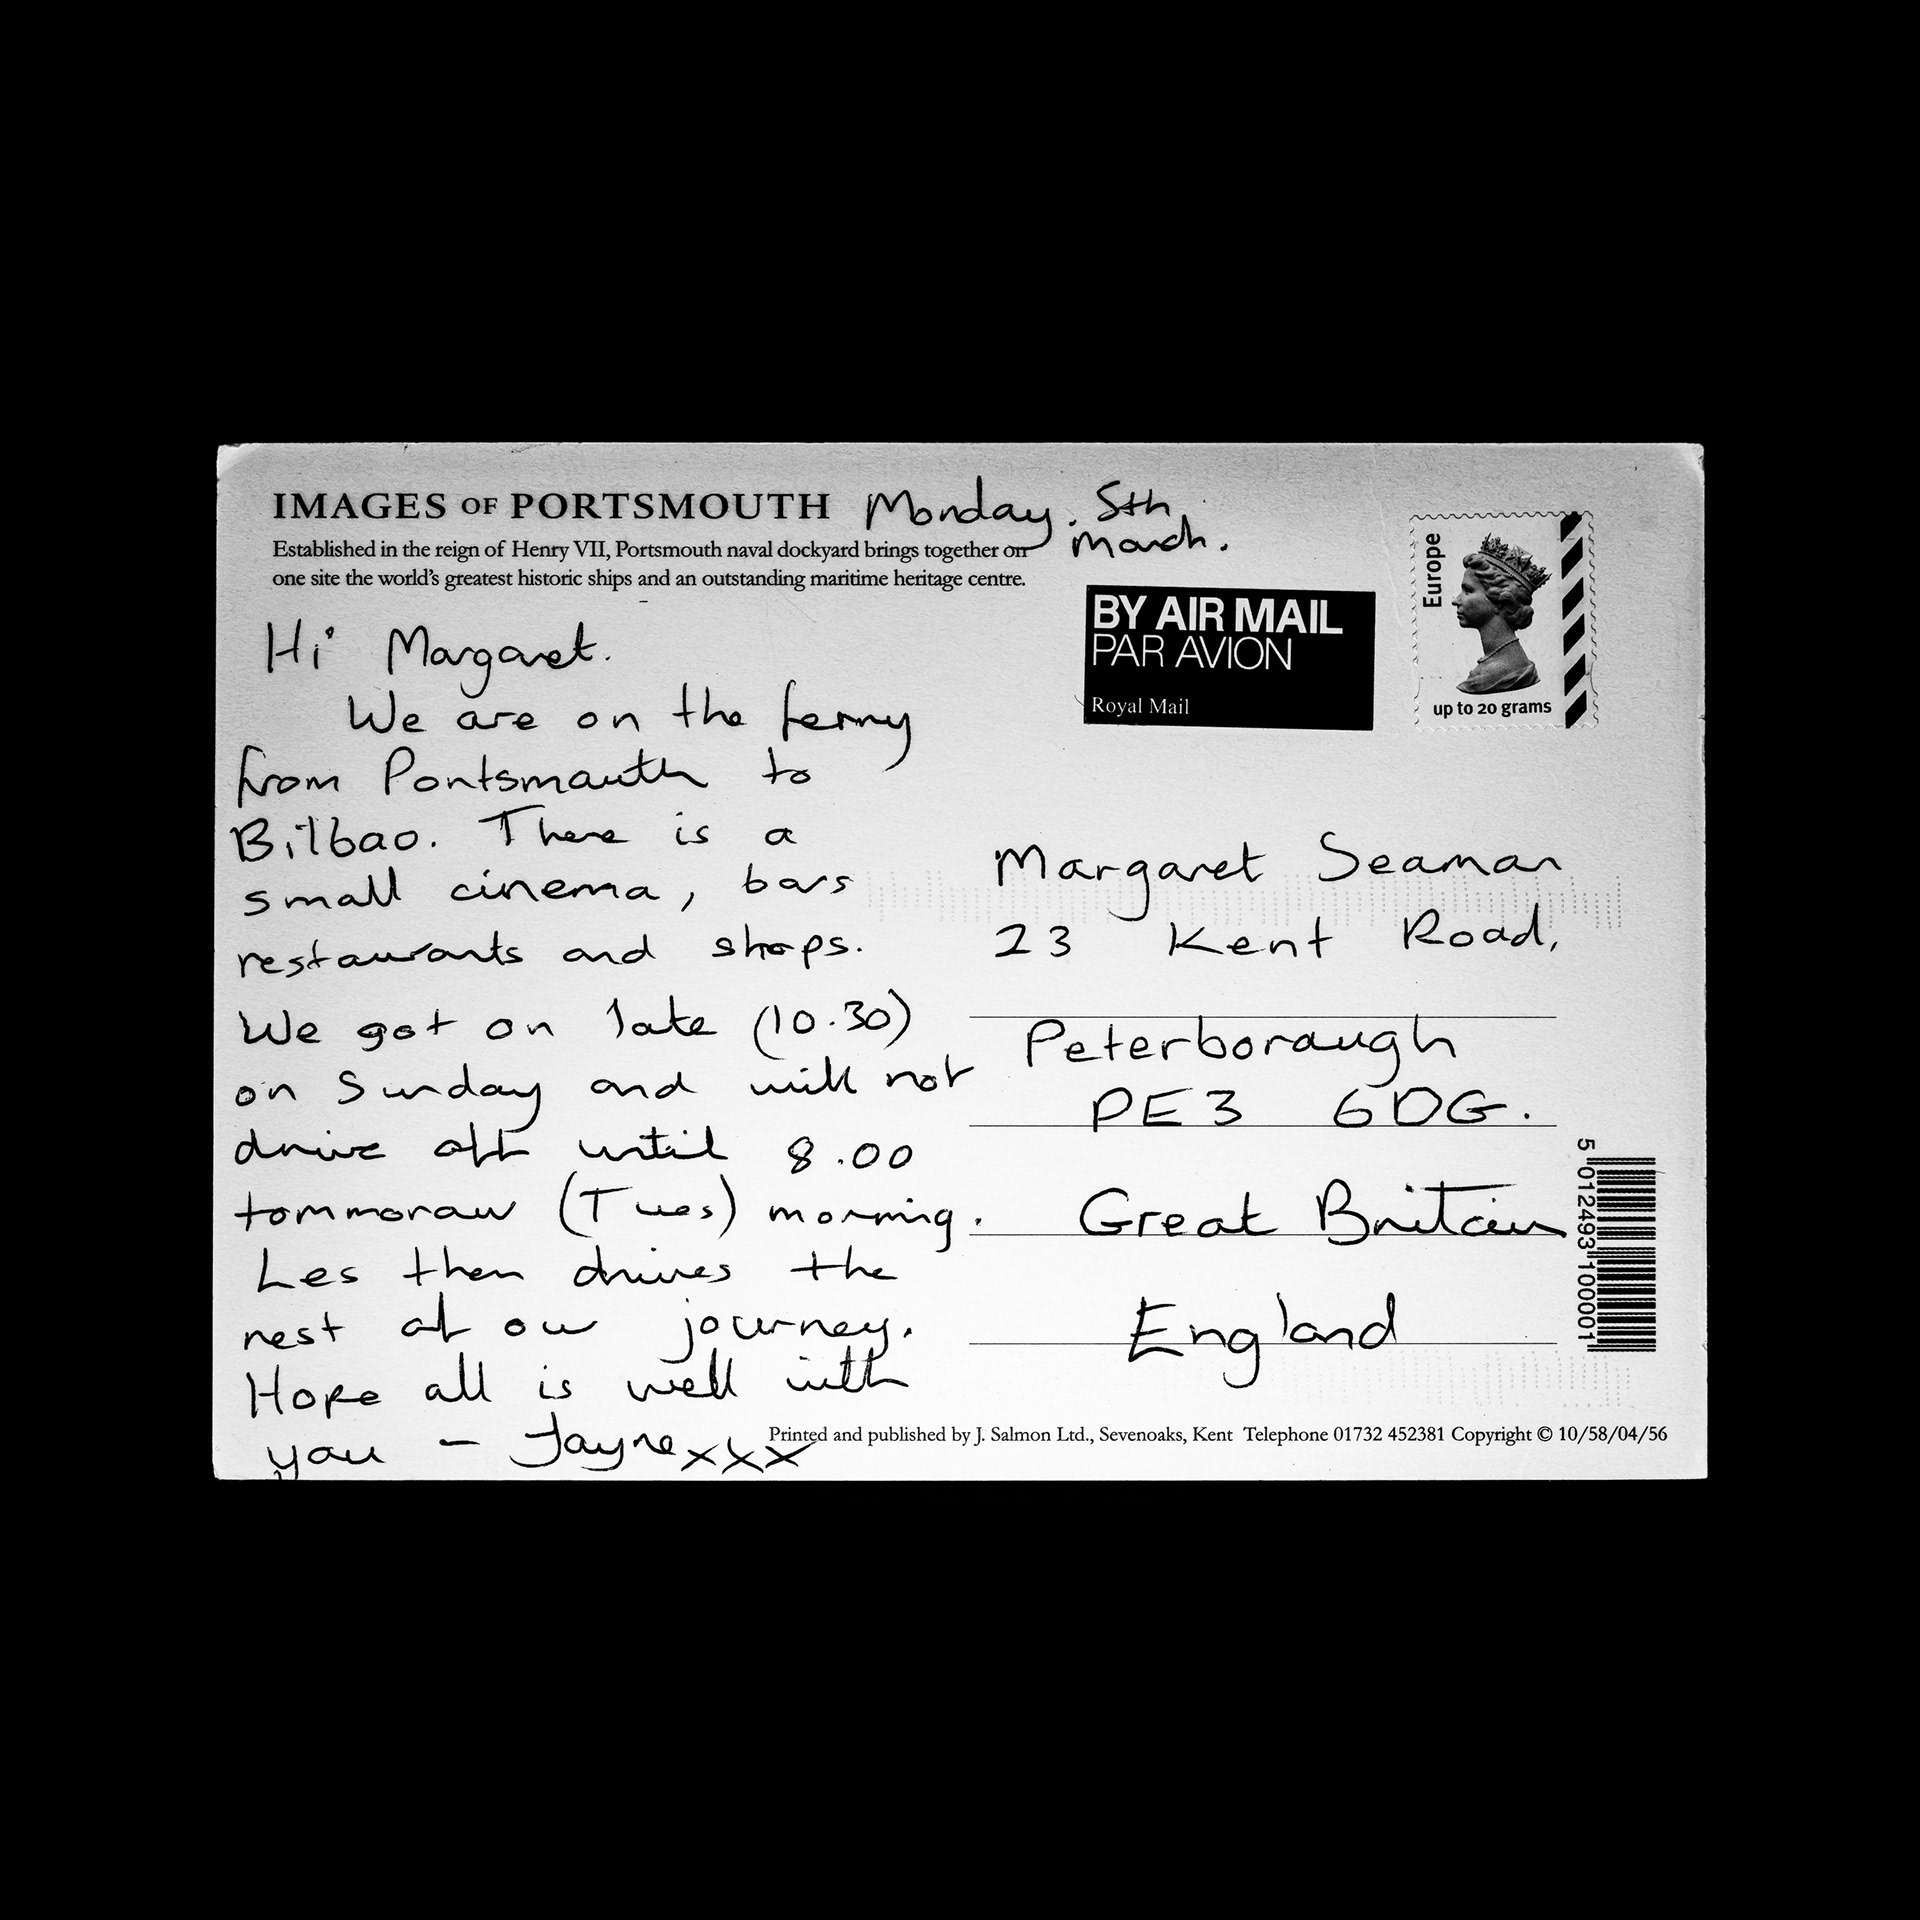 IMAGES OF PORTSMOUTH
Monday. 5th
March.
Established in the reign of Henry VII, Portsmouth naval dockyard brings together on
one site the world's greatest historic ships and an outstanding maritime heritage centre.
Hi Margaret.
We are on the ferry
from Portsmouth to
Bilbao. There is a
small cinema, bars
restaurants and shops.
We got on late (10.30)
on Sunday and will not
drive off until 8.00
tommorow (Tues) morning.
Les then drives the
rest of our journey.
Hope all is well with
you - Jayne xxx
BY AIR MAIL
PAR AVION
Royal Mail
Europe
up to 20 grams
Margaret Seaman
23 Kent Road,
Peterborough
PE3 6DG.
Great Britain
England
5 012493 100001
Printed and published by J. Salmon Ltd., Sevenoaks, Kent Telephone 01732 452381 Copyright © 10/58/04/56